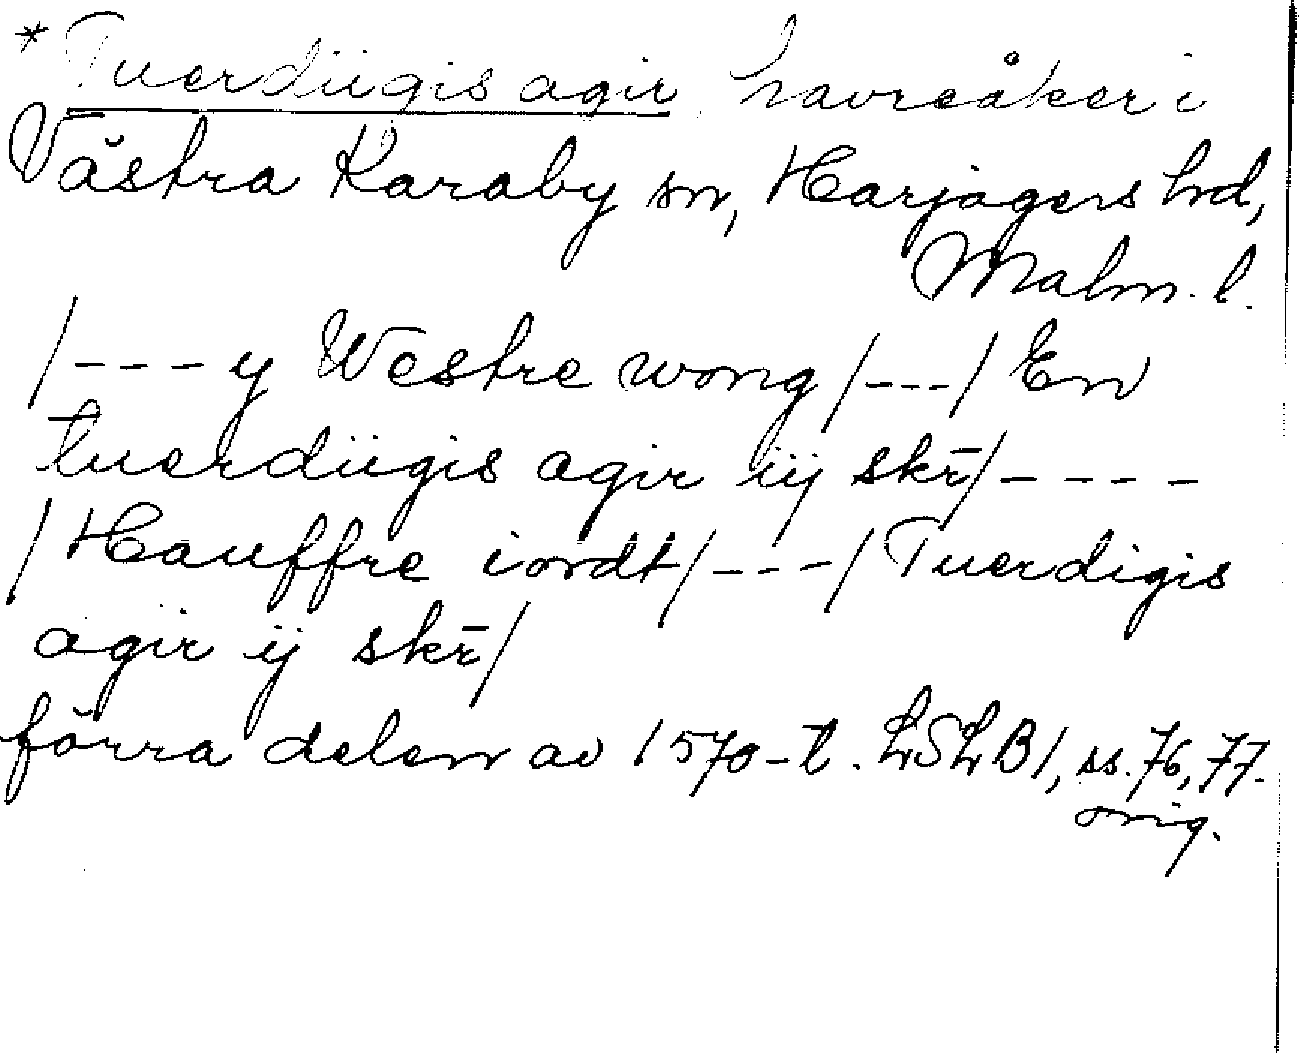 * Tuerdiigis agir havreåker i
Västra Karaby sn, Harjagers hd,
Malm. l.
/---y Westre wong/---/ En
tuerdiigis agir iij skr̄/----
/Hauffre iordt/---/Tuerdigis
agir ij skr̄/
förra delen av 1570-t. LSLB1, ss. 76, 77.
orig.